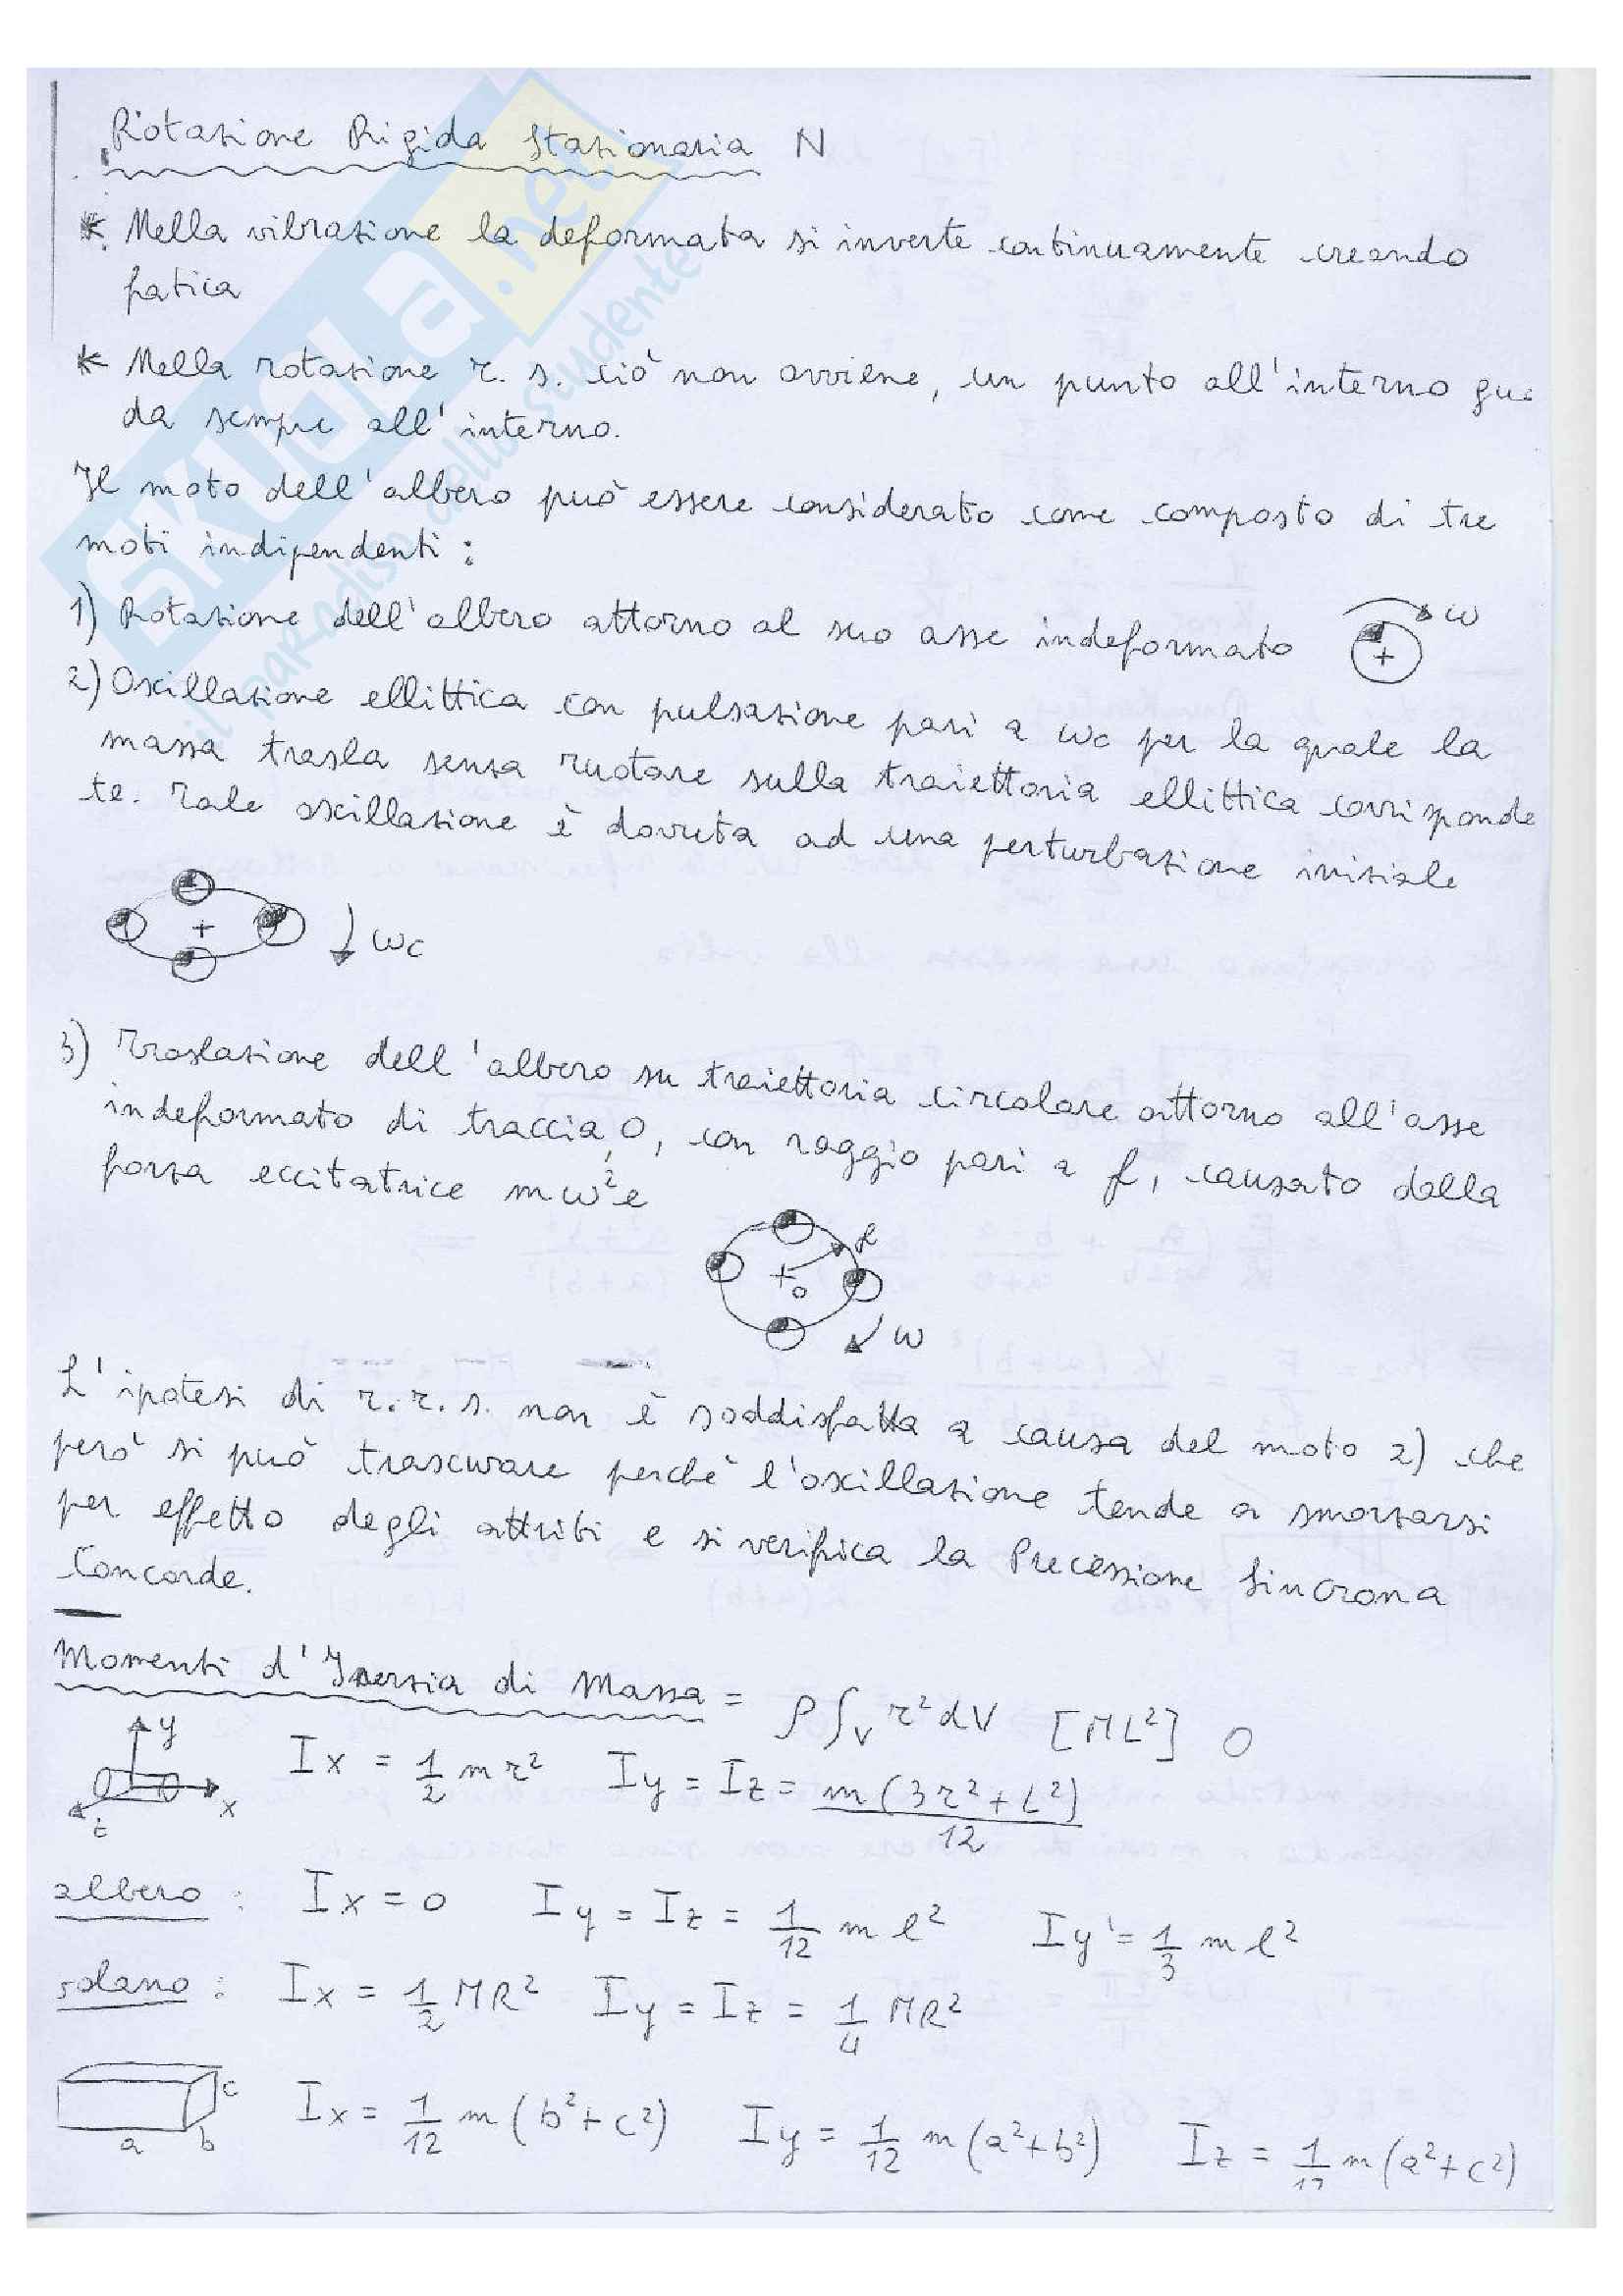 Rotazione Rigida Stazionaria N
* Nella vibrazione la deformata si inverte continuamente creando
fatica
* Nella rotazione r. s. ciò non avviene, un punto all'interno gua
da sempre all'interno.
Il moto dell'albero può essere considerato come composto di tre
moti indipendenti :
1) Rotazione dell'albero attorno al suo asse indeformato
ω
2) Oscillazione ellittica con pulsazione pari a ωc per la quale la
massa trasla senza ruotare sulla traiettoria ellittica corrisponde
te. Tale oscillazione è dovuta ad una perturbazione iniziale
ωc
3) Traslazione dell'albero su traiettoria circolare attorno all'asse
indeformato di traccia O, con raggio pari a f, causato dalla
forza eccitatrice mω²e
f
o
ω
L'ipotesi di r.r.s. non è soddisfatta a causa del moto 2) che
però si può trascurare perchè l'oscillazione tende a smorzarsi
per effetto degli attriti e si verifica la Precessione Sincrona
Concorde.
Momenti d'Inerzia di Massa = ρ∫v r²dV [ML²] O
y
x
z
Ix = 1/2 mr² Iy = Iz = m(3r²+L²)/12
albero : Ix = 0 Iy = Iz = 1/12 m l² Iy' = 1/3 m l²
: Ix = 1/2 MR² Iy = Iz = 1/4 MR²
a b c
Ix = 1/12 m(b²+c²) Iy = 1/12 m(a²+b²) Iz = 1/12 m(a²+c²)
SKUOLA.net
il paradiso dello studente